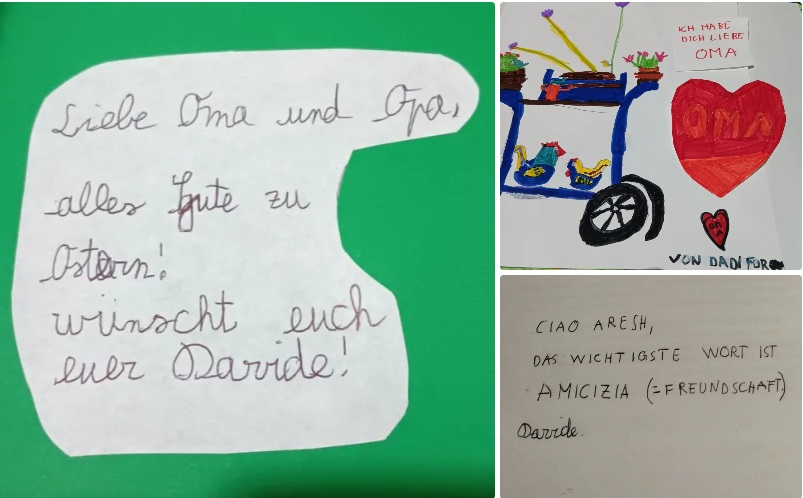 Liebe Oma und Opa,
alles gute zu
Ostern!
wünscht euch
euer Davide!
ICH HABE
DICH LIEBE
OMA
OMA
OMA
VON DADI FÜR
CIAO ARESH,
DAS WICHTIGSTE WORT IST
AMICIZIA (=FREUNDSCHAFT)
Davide.